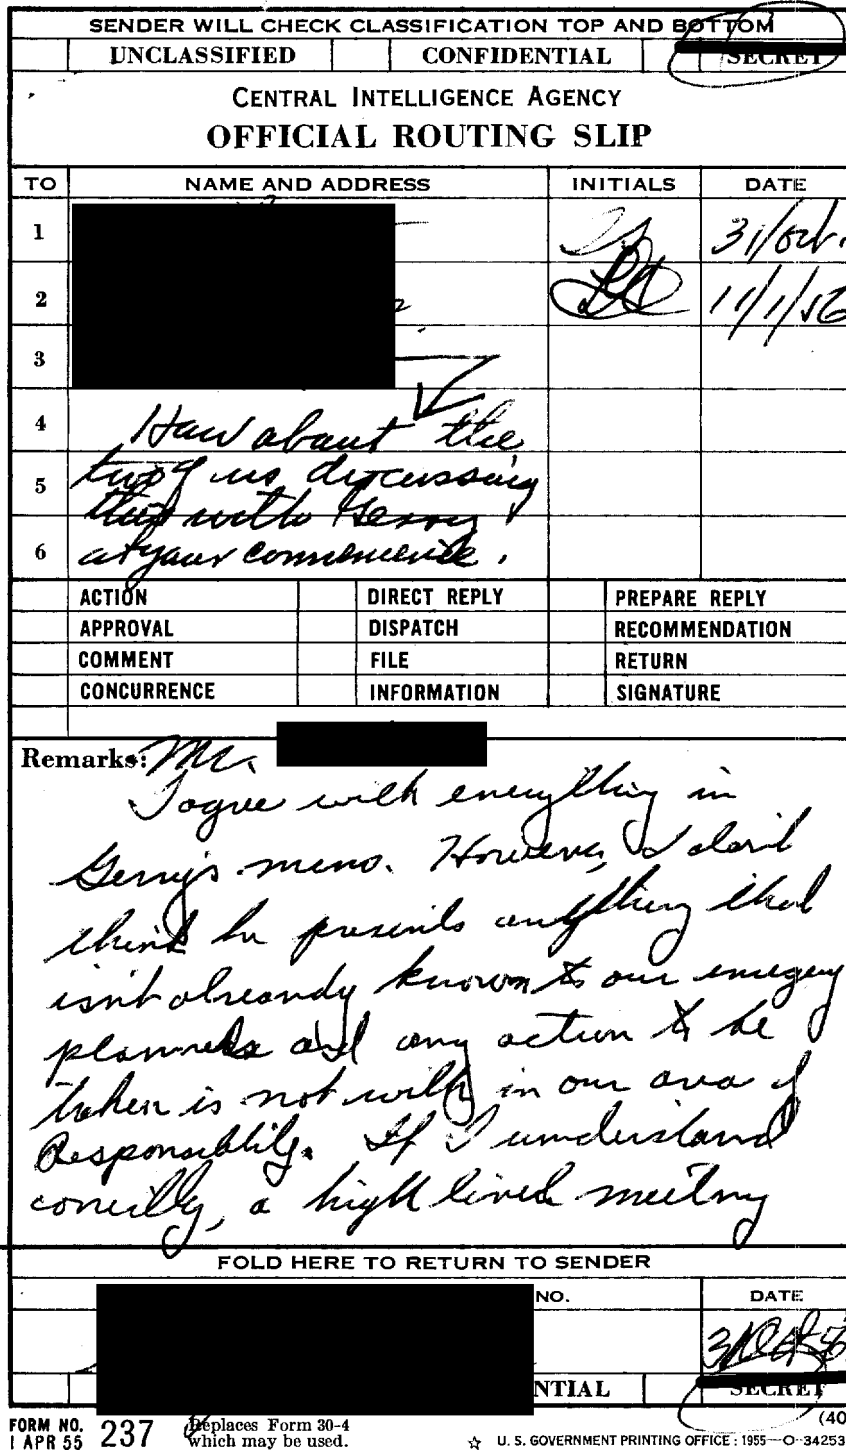 SENDER WILL CHECK CLASSIFICATION TOP AND BOTTOM
UNCLASSIFIED CONFIDENTIAL SECRET
CENTRAL INTELLIGENCE AGENCY
OFFICIAL ROUTING SLIP
TO NAME AND ADDRESS INITIALS DATE
1 31/Oct.
2 11/1/56
3
4 How about the
5 two of us discussing
this with Gerry
6 at your convenience.
ACTION DIRECT REPLY PREPARE REPLY
APPROVAL DISPATCH RECOMMENDATION
COMMENT FILE RETURN
CONCURRENCE INFORMATION SIGNATURE
Remarks: Mr.
I agree with everything in
Gerry's memo. However, I don't
think he presents anything that
isn't already known to our emergency
planners and any action to be
taken is not within our area of
Responsibility. If I understand
correctly, a high level meeting
FOLD HERE TO RETURN TO SENDER
NO. DATE
31 Oct 56
NTIAL SECRET
FORM NO. 237 Replaces Form 30-4 (40)
1 APR 55 which may be used. ☆ U. S. GOVERNMENT PRINTING OFFICE : 1955—O-34253